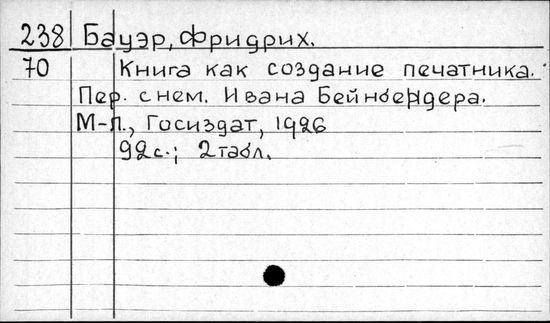 238 Бауэр, Фридрих.
70 Книга как создание печатника.
Пер. с нем. Ивана
М-Л., Госиздат, 1926
92с.; 2 табл.